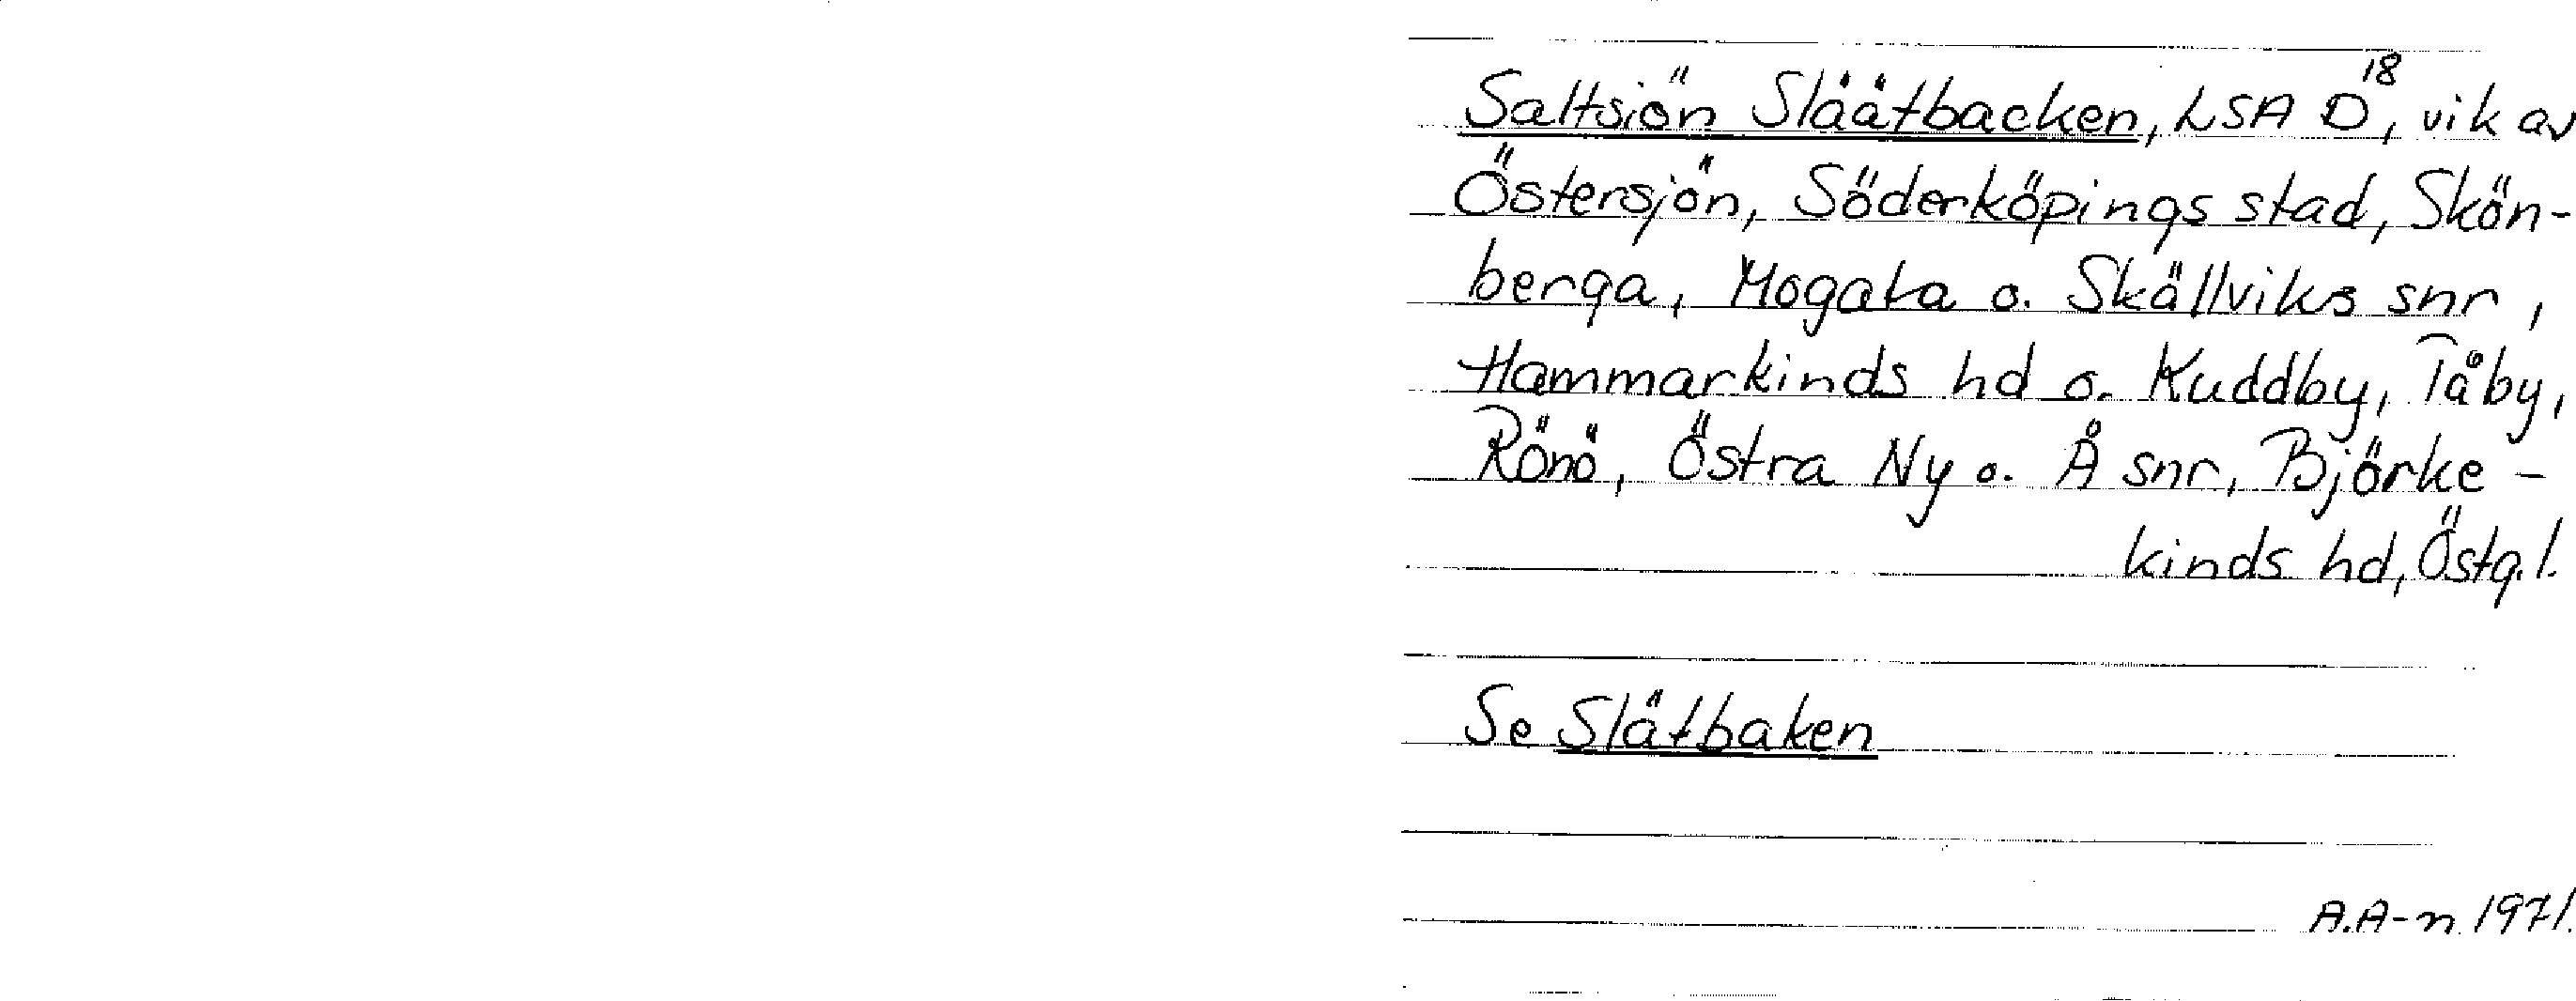 Saltsiön Släätbacken, LSA D¹⁸, vik av
Östersjön, Söderköpings stad, Skön-
berga, Mogata o. Skällviks snr,
Hammarkinds hd o. Kuddby, Tåby,
Rönö, Östra Ny o. Å snr, Björke-
kinds hd, Östg.l.
Se Slätbaken
A.A-n 1971.